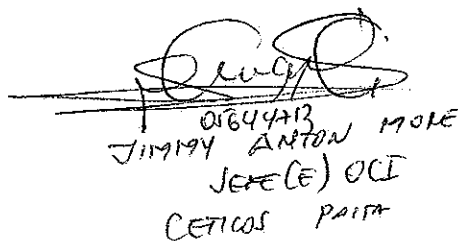 05644713
JIMMY ANTON MORE
JEFE(E) OCI
CETICOS PAITA